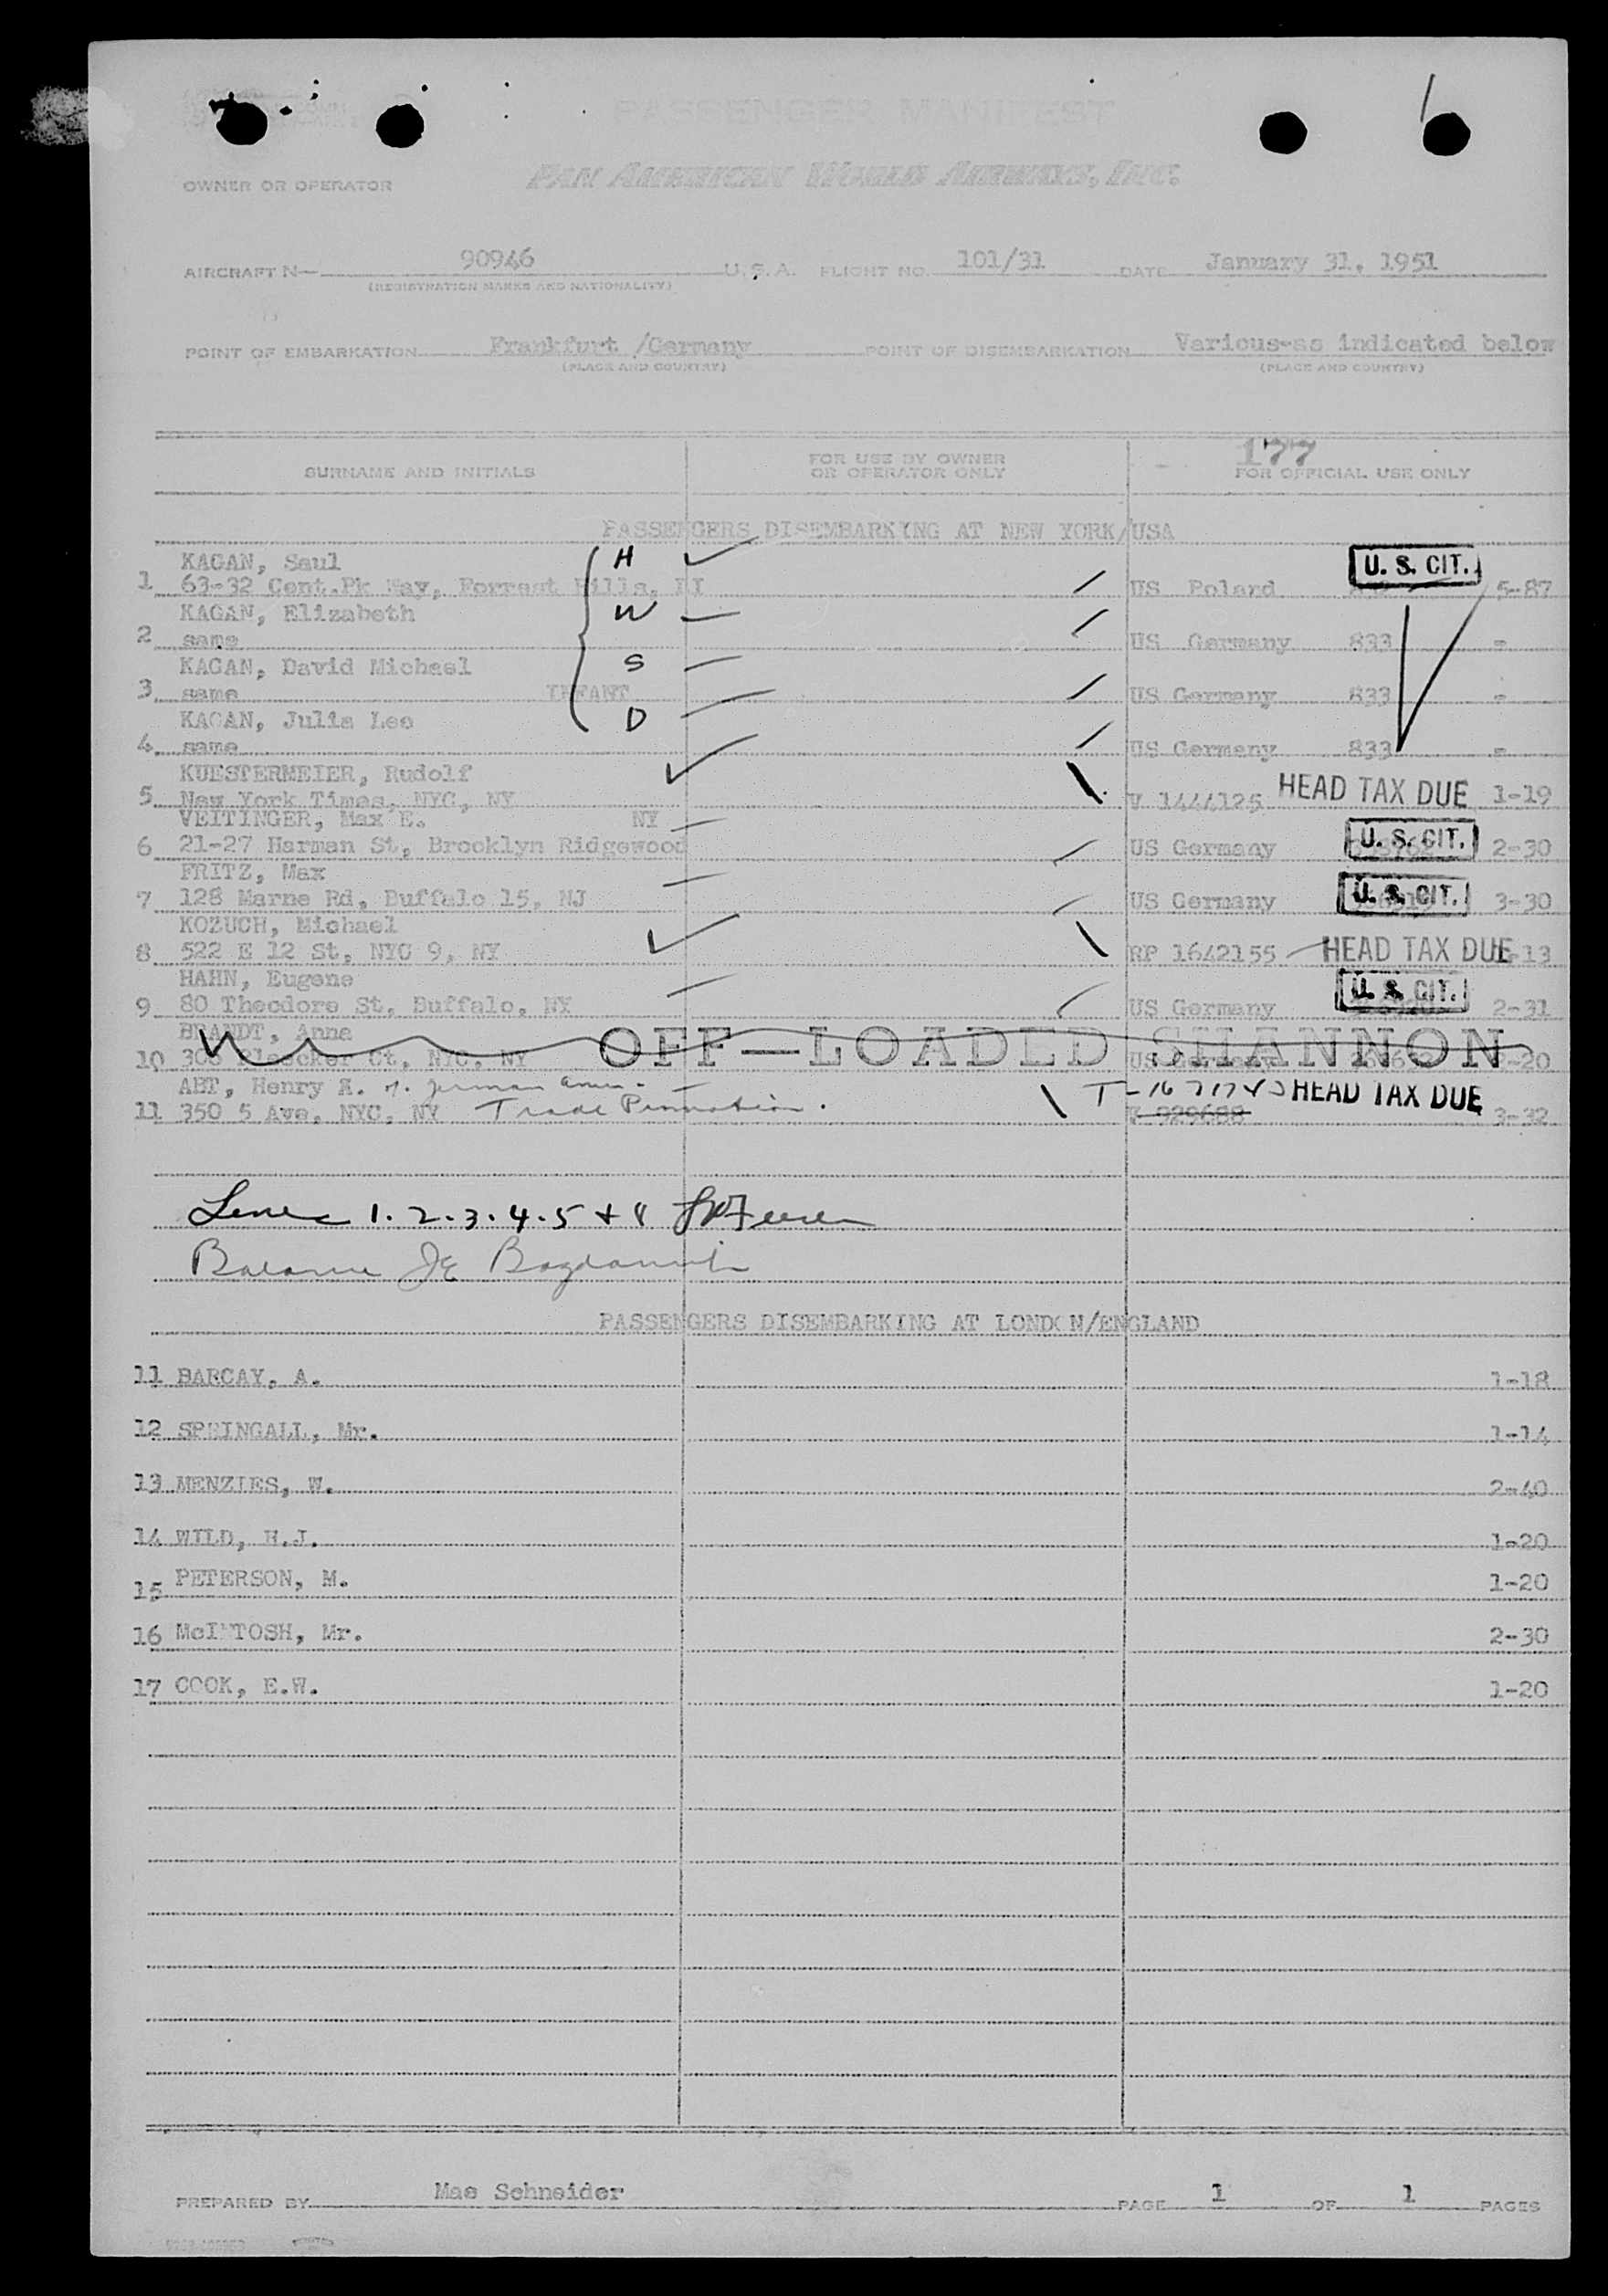 PASSENGER MANIFEST
OWNER OR OPERATOR PAN AMERICAN WORLD AIRWAYS, INC.
AIRCRAFT N— 90946 U.S.A. FLIGHT NO. 101/31 DATE January 31, 1951
(REGISTRATION MARKS AND NATIONALITY)
POINT OF EMBARKATION Frankfurt /Germany POINT OF DISEMBARKATION Various-as indicated below
(PLACE AND COUNTRY) (PLACE AND COUNTRY)
177
SURNAME AND INITIALS FOR USE BY OWNER OR OPERATOR ONLY FOR OFFICIAL USE ONLY
PASSENGERS DISEMBARKING AT NEW YORK/USA
KAGAN, Saul H U. S. CIT.
1 63-32 Cent.Pk Way, Forrest Hills, US Poland 5-87
KAGAN, Elizabeth W
2 same US Germany 833 -
KAGAN, David Michael S
3 same INFANT US Germany 833 -
KAGAN, Julia Lee D
4 same US Germany 833 -
KUESTERMEIER, Rudolf
5 New York Times, NYC, NY V 1444125 HEAD TAX DUE 1-19
VEITINGER, Max E. NY U. S. CIT.
6 21-27 Harman St, Brooklyn Ridgewood US Germany 2-30
FRITZ, Max U. S. CIT.
7 128 Marne Rd, Buffalo 15, NJ US Germany 3-30
KOZUCH, Michael
8 522 E 12 St, NYC 9, NY RP 1642155 HEAD TAX DUE -13
HAHN, Eugene U. S. CIT.
9 80 Theodore St, Buffalo, NY US Germany 2-31
BRANDT, Anna OFF—LOADED SHANNON
10 NYC, NY US Germany -20
ABT, Henry German Amer. HEAD TAX DUE
11 350 5 Ave, NYC, NY Trade Promotion. V 929688 3-32
Lines 1.2.3.4.5 + 8
Balance JE
PASSENGERS DISEMBARKING AT LONDON/ENGLAND
11 BARCAY, A. 1-18
12 SPRINGALL, Mr. 1-14
13 MENZIES, W. 2-40
14 WILD, H.J. 1-20
15 PETERSON, M. 1-20
16 McINTOSH, Mr. 2-30
17 COOK, E.W. 1-20
PREPARED BY Mae Schneider PAGE 1 OF 1 PAGES